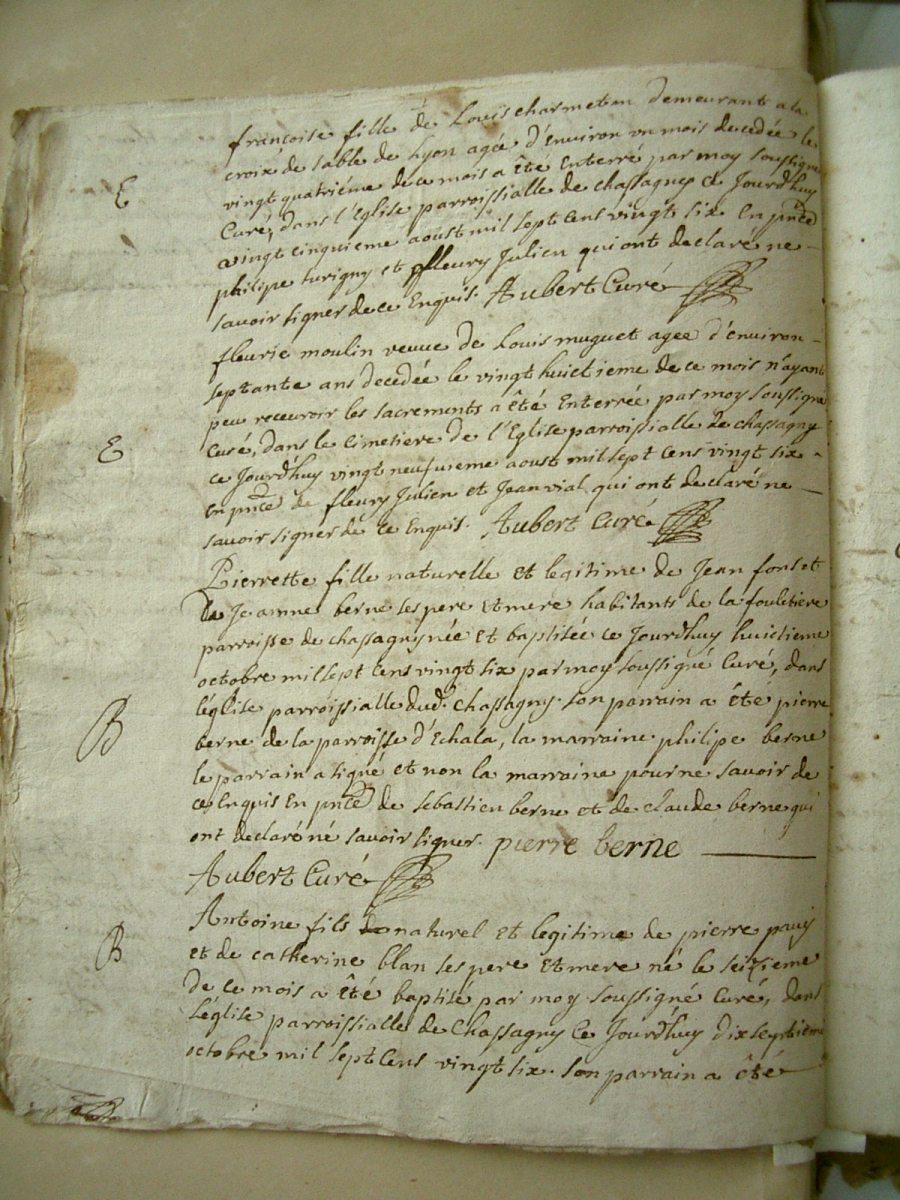 françoise fille de Louis charmeton demeurant a la
croix de sable de Lyon agée d'environ un mois decedée le
E
vingt quatriéme de ce mois a êté Enterré par moy soussigné
Curé, dans l'Eglise parroissialle de chassagny ce Jourdhuy
vingt cinquieme aoust mil sept cens vingt six En pnce
philipe turigny et fleury Julien qui ont declaré ne
savoir signer de ce Enquis. Aubert Curé
fleurie moulin veuve de Louis muguet agee d'environ
septante ans decedée le vingt huictieme de ce mois n'ayant
peu recevoir les sacrements a êté Enterrée par moy soussigné
E
Curé, dans le Cimetiere de l'Eglise parroissialle de chassagny
ce Jourdhuy vingt neufvieme aoust mil sept cens vingt six
En pnce de fleury Julien et Jean vial qui ont declaré ne
savoir signer de ce Enquis. Aubert Curé
Pierrette fille naturelle et legitime de Jean fonset
de Jeamne berne ses pere et mere habitants de la fouletiere
parroisse de chassagny née et baptisée ce Jourdhuy huictieme
octobre mil sept cens vingt six par moy soussigné Curé, dans
B
l'église parroissialle dud. Chassagny. son parrain a êté pierre
berne de la parroisse d'Echala, la marraine philipe berne
le parrain a signé et non la marraine pour ne savoir de
ce Enquis En pnce de sebastien berne et de claude berne qui
ont declaré né savoir signer. pierre berne
Aubert Curé
B
Antoine fils naturel et legitime de pierre
et de catherine blan ses pere et mere né le seizieme
de ce mois a êté baptisé par moy soussigné Curé, dans
l'église parroissialle de Chassagny Ce Jourdhuy dix septieme
octobre mil sept cens vingt six. son parrain a êté